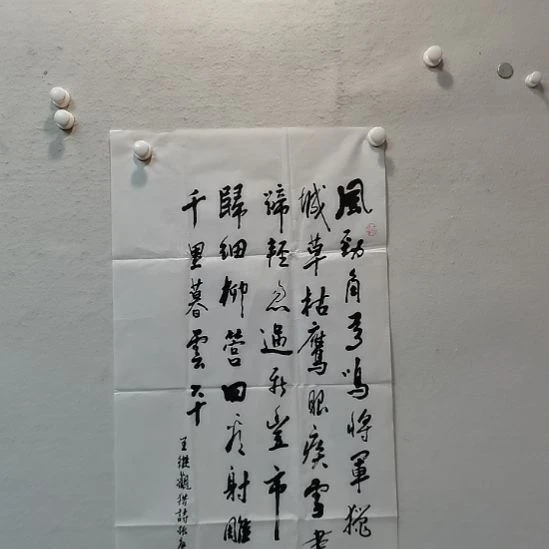 風勁角弓鳴將軍獵
城草枯鷹眼疾雪盡
蹄輕忽過新豐市
歸細柳營回看射雕
千里暮雲平
王維觀猎詩張